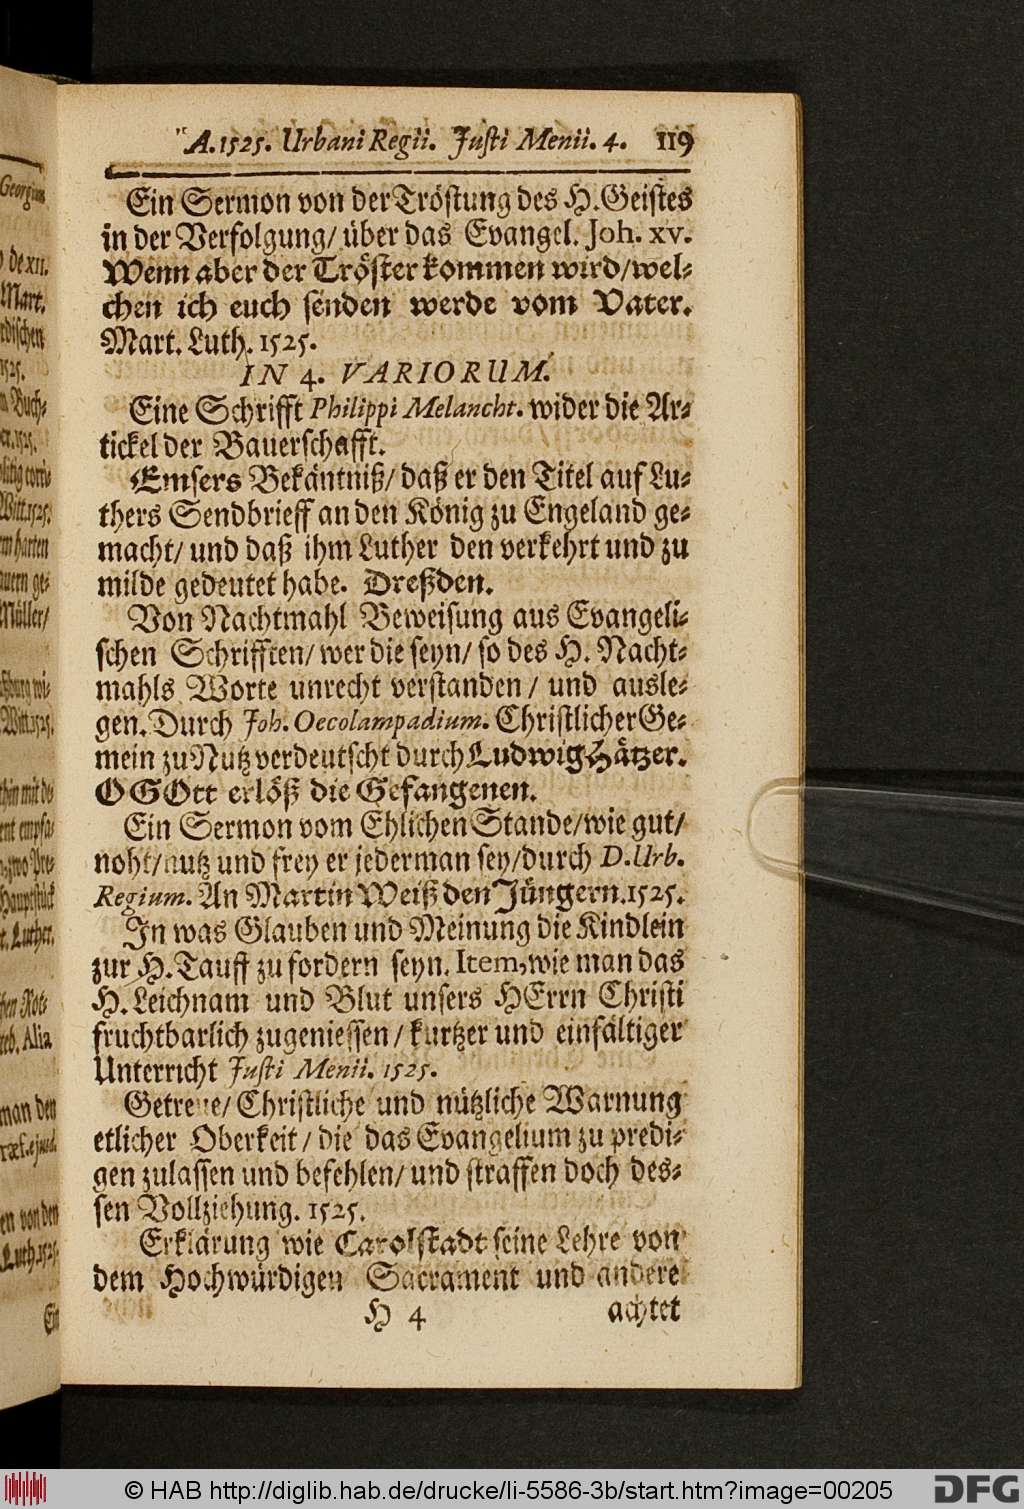 A. 1525. Urbani Regii. Justi Menii. 4. 119
Ein Sermon von der Tröstung des H. Geistes
in der Verfolgung/ über das Evangel. Joh. xv.
Wenn aber der Tröster kommen wird/ wel-
chen ich euch senden werde vom Vater.
Mart. Luth. 1525.
IN 4. VARIORUM.
Eine Schrifft Philippi Melancht. wider die Ar-
tickel der Bauerschafft.
Emsers Bekäntniß/ daß er den Titel auf Lu-
thers Sendbrieff an den König zu Engeland ge-
macht/ und daß ihm Luther den verkehrt und zu
milde gedeutet habe. Dreßden.
Von Nachtmahl Beweisung aus Evangeli-
schen Schrifften/ wer die seyn/ so des H. Nacht-
mahls Worte unrecht verstanden/ und ausle-
gen. Durch Joh. Oecolampadium. Christlicher Ge-
mein zu Nutz verdeutscht durch Ludwig Hätzer.
O GOtt erlöß die Gefangenen.
Ein Sermon vom Ehlichen Stande/ wie gut/
noht/ nutz und frey er jederman sey/ durch D. Urb.
Regium. An Martin Weiß den Jüngern. 1525.
In was Glauben und Meinung die Kindlein
zur H. Tauff zu fordern seyn. Item, wie man das
H. Leichnam und Blut unsers HErrn Christi
fruchtbarlich zugeniessen/ kurtzer und einfältiger
Unterricht Justi Menii. 1525.
Getreue/ Christliche und nützliche Warnung
etlicher Oberkeit/ die das Evangelium zu predi-
gen zulassen und befehlen/ und straffen doch des-
sen Vollziehung. 1525.
Erklärung wie Carolstadt seine Lehre von
dem Hochwürdigen Sacrament und andere
H 4 achtet
© HAB http://diglib.hab.de/drucke/li-5586-3b/start.htm?image=00205
DFG